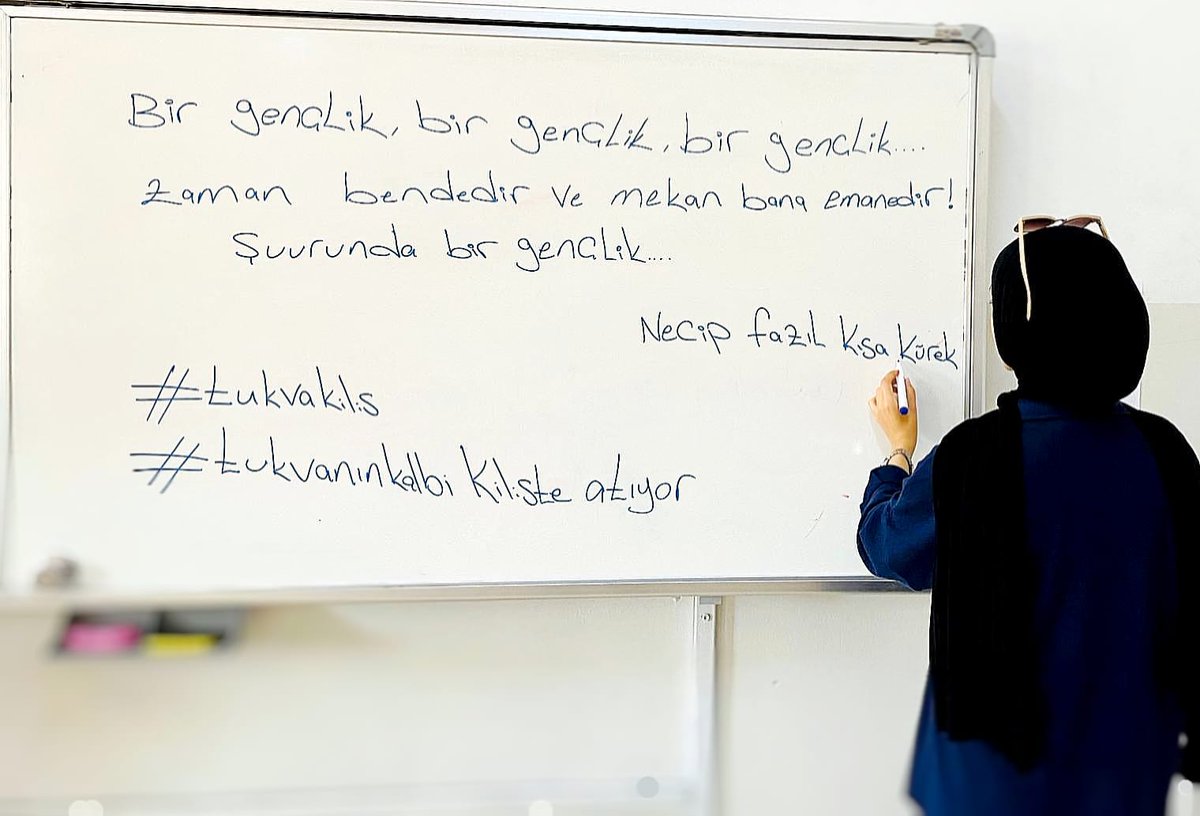 Bir gençlik, bir gençlik, bir gençlik....
Zaman bendedir ve mekan bana emanedir!
Şuurunda bir gençlik....
Necip fazıl Kısa Kürek
#tukvakilis
#tukvanınkalbi Kiliste atıyor